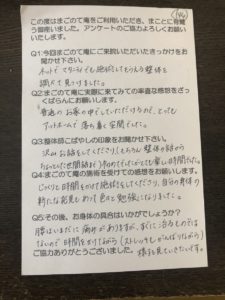 この度はまごのて庵をご利用いただき、まことに有難
う御座いました。アンケートのご協力よろしくお願い
いたします。
Q1:今回まごのて庵にご来院いただいたきっかけをお
聞かせ下さい。
ネットで でも施術してもらえる整体を
調べて見つけました。
Q2:まごのて庵に実際に来てみての率直な感想をざっ
くばらんにお願いします。
普通のお家の中でしていただけるので、とっても
アットホームで落ち着く空間でした。
Q3:整体師こばやしの印象をお聞かせ下さい。
沢山お話をしてくださり(もちろん整体の話から
ちょっとした世間話まで) でとても楽しい時間でした。
Q4:まごのて庵の施術を受けての感想をお願いします。
じっくりと時間をかけ施術をしてくださり、自分の身体の
新たな発見もあって色々と勉強になりました。
Q5:その後、お身体の具合はいかがでしょうか?
腰はいまだに痛めがありますが、すぐに治るものでは
ないので時間をかけながら(ストレッチもがんばりながら)
ご協力ありがとうございました。 様子を見ていきたいです。